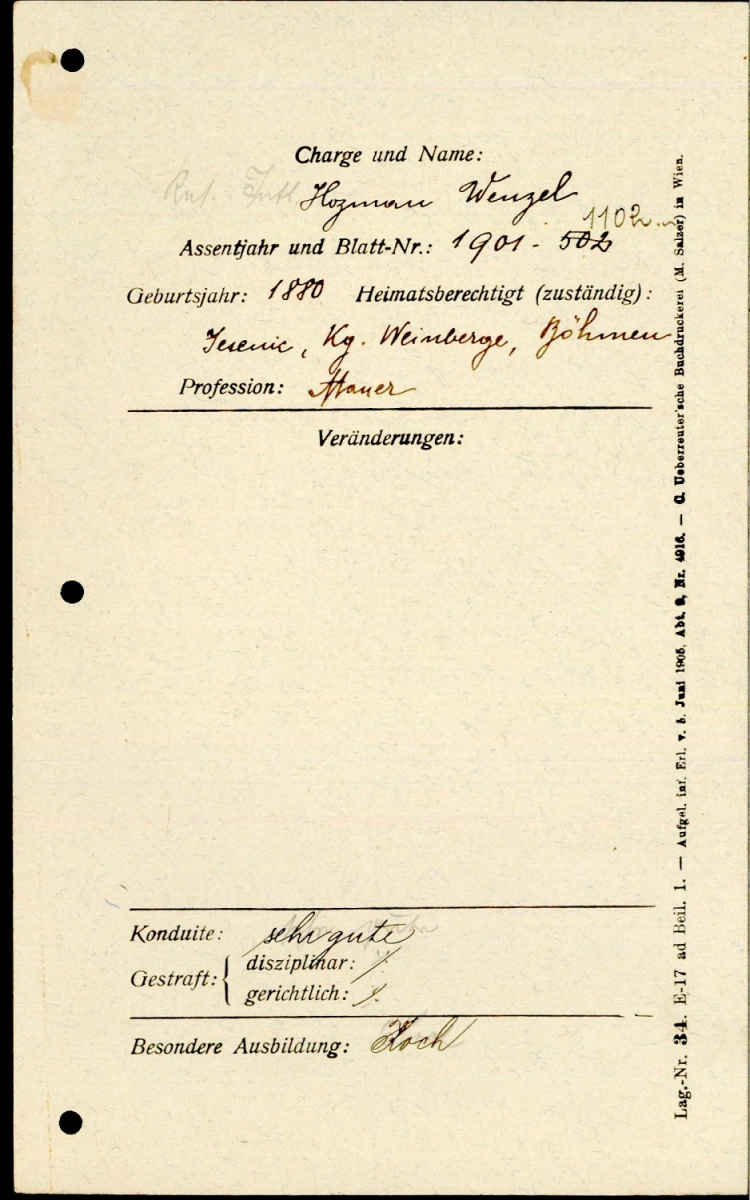 Charge und Name:
Hozman Wenzel
1102
Assentjahr und Blatt-Nr.: 1901 - 502
Geburtsjahr: 1880 Heimatsberechtigt (zuständig):
Jesenic, Kg. Weinberge, Böhmen
Profession: Maurer
Veränderungen:
Konduite: sehr gute
Gestraft: { disziplinar: ⁒
gerichtlich: ⁒
Besondere Ausbildung: Koch
Lag.-Nr. 34. E-17 ad Beil. 1. — Aufgel. inf. Erl. v. 5. Juni 1905, Abt. 2, Nr. 4916. — C. Ueberreuter'sche Buchdruckerei (M. Salzer) in Wien.